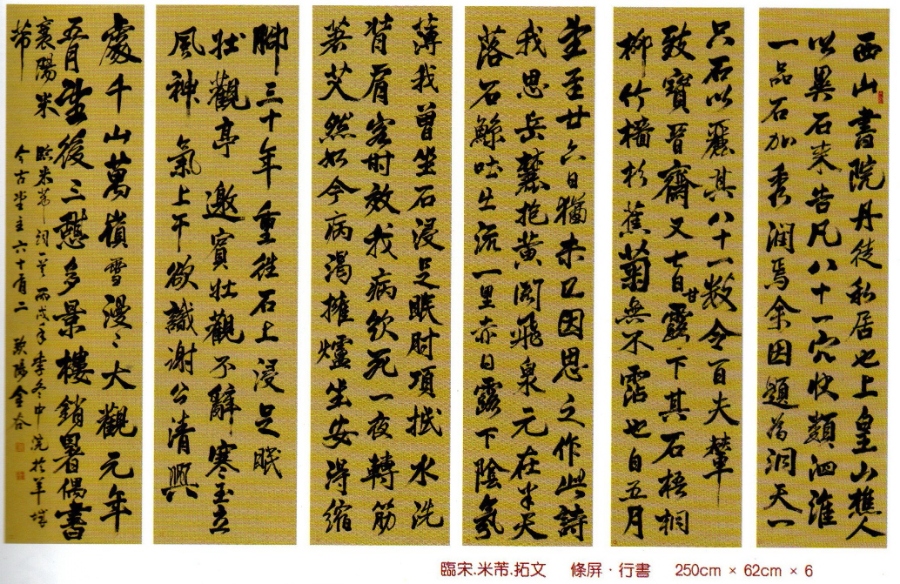 西山書院丹徒私居也上皇山樵人
以異石来告凡八十一穴狀類泗淮
一品石加秀潤焉余因題為洞天一
只石以麗其八十一數令百夫輦
致寶晉齋又七日甘露下其石梧桐
柳竹檣杉蕉菊無不霑也自五月
望至廿六日猶未已因思之作此詩
我思岳麓抱黄閣飛泉元在半天
落石鯨吐出流一里赤日露下陰氣
薄我曾坐石浸足眠肘項抵水洗
背肩客時效我病欲死一夜轉筋
著艾然如今病渴擁爐坐安得縮
脚三十年重往石上浸足眠
壯觀亭邀賓壯觀不辭寒玉立
風神氣上干欲識謝公清興
處千山萬嶺雪漫々大觀元年
五月望後三憇多景樓銷暑偶書
襄陽米
芾
臨米芾詞 丙戌年季冬中浣於羊城
今古堂主六十有二 歐陽金谷
臨宋.米芾.拓文 條屏·行書 250cm × 62cm × 6